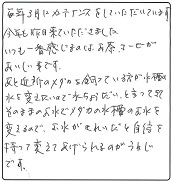 毎年3月にメンテナンスをしていただいています
今年も昨日来ていただきました
いつも一番感じるのは、お茶、コーヒーが
おいしいです。
あと近所のメダカを飼っている方が水槽
水を変えたいので水ちょうだい。と言って
そのままの水でメダカの水槽のお水を
変えるので、お水がきれいだと自信を
持って変えてあげられるのがうれしい
です。